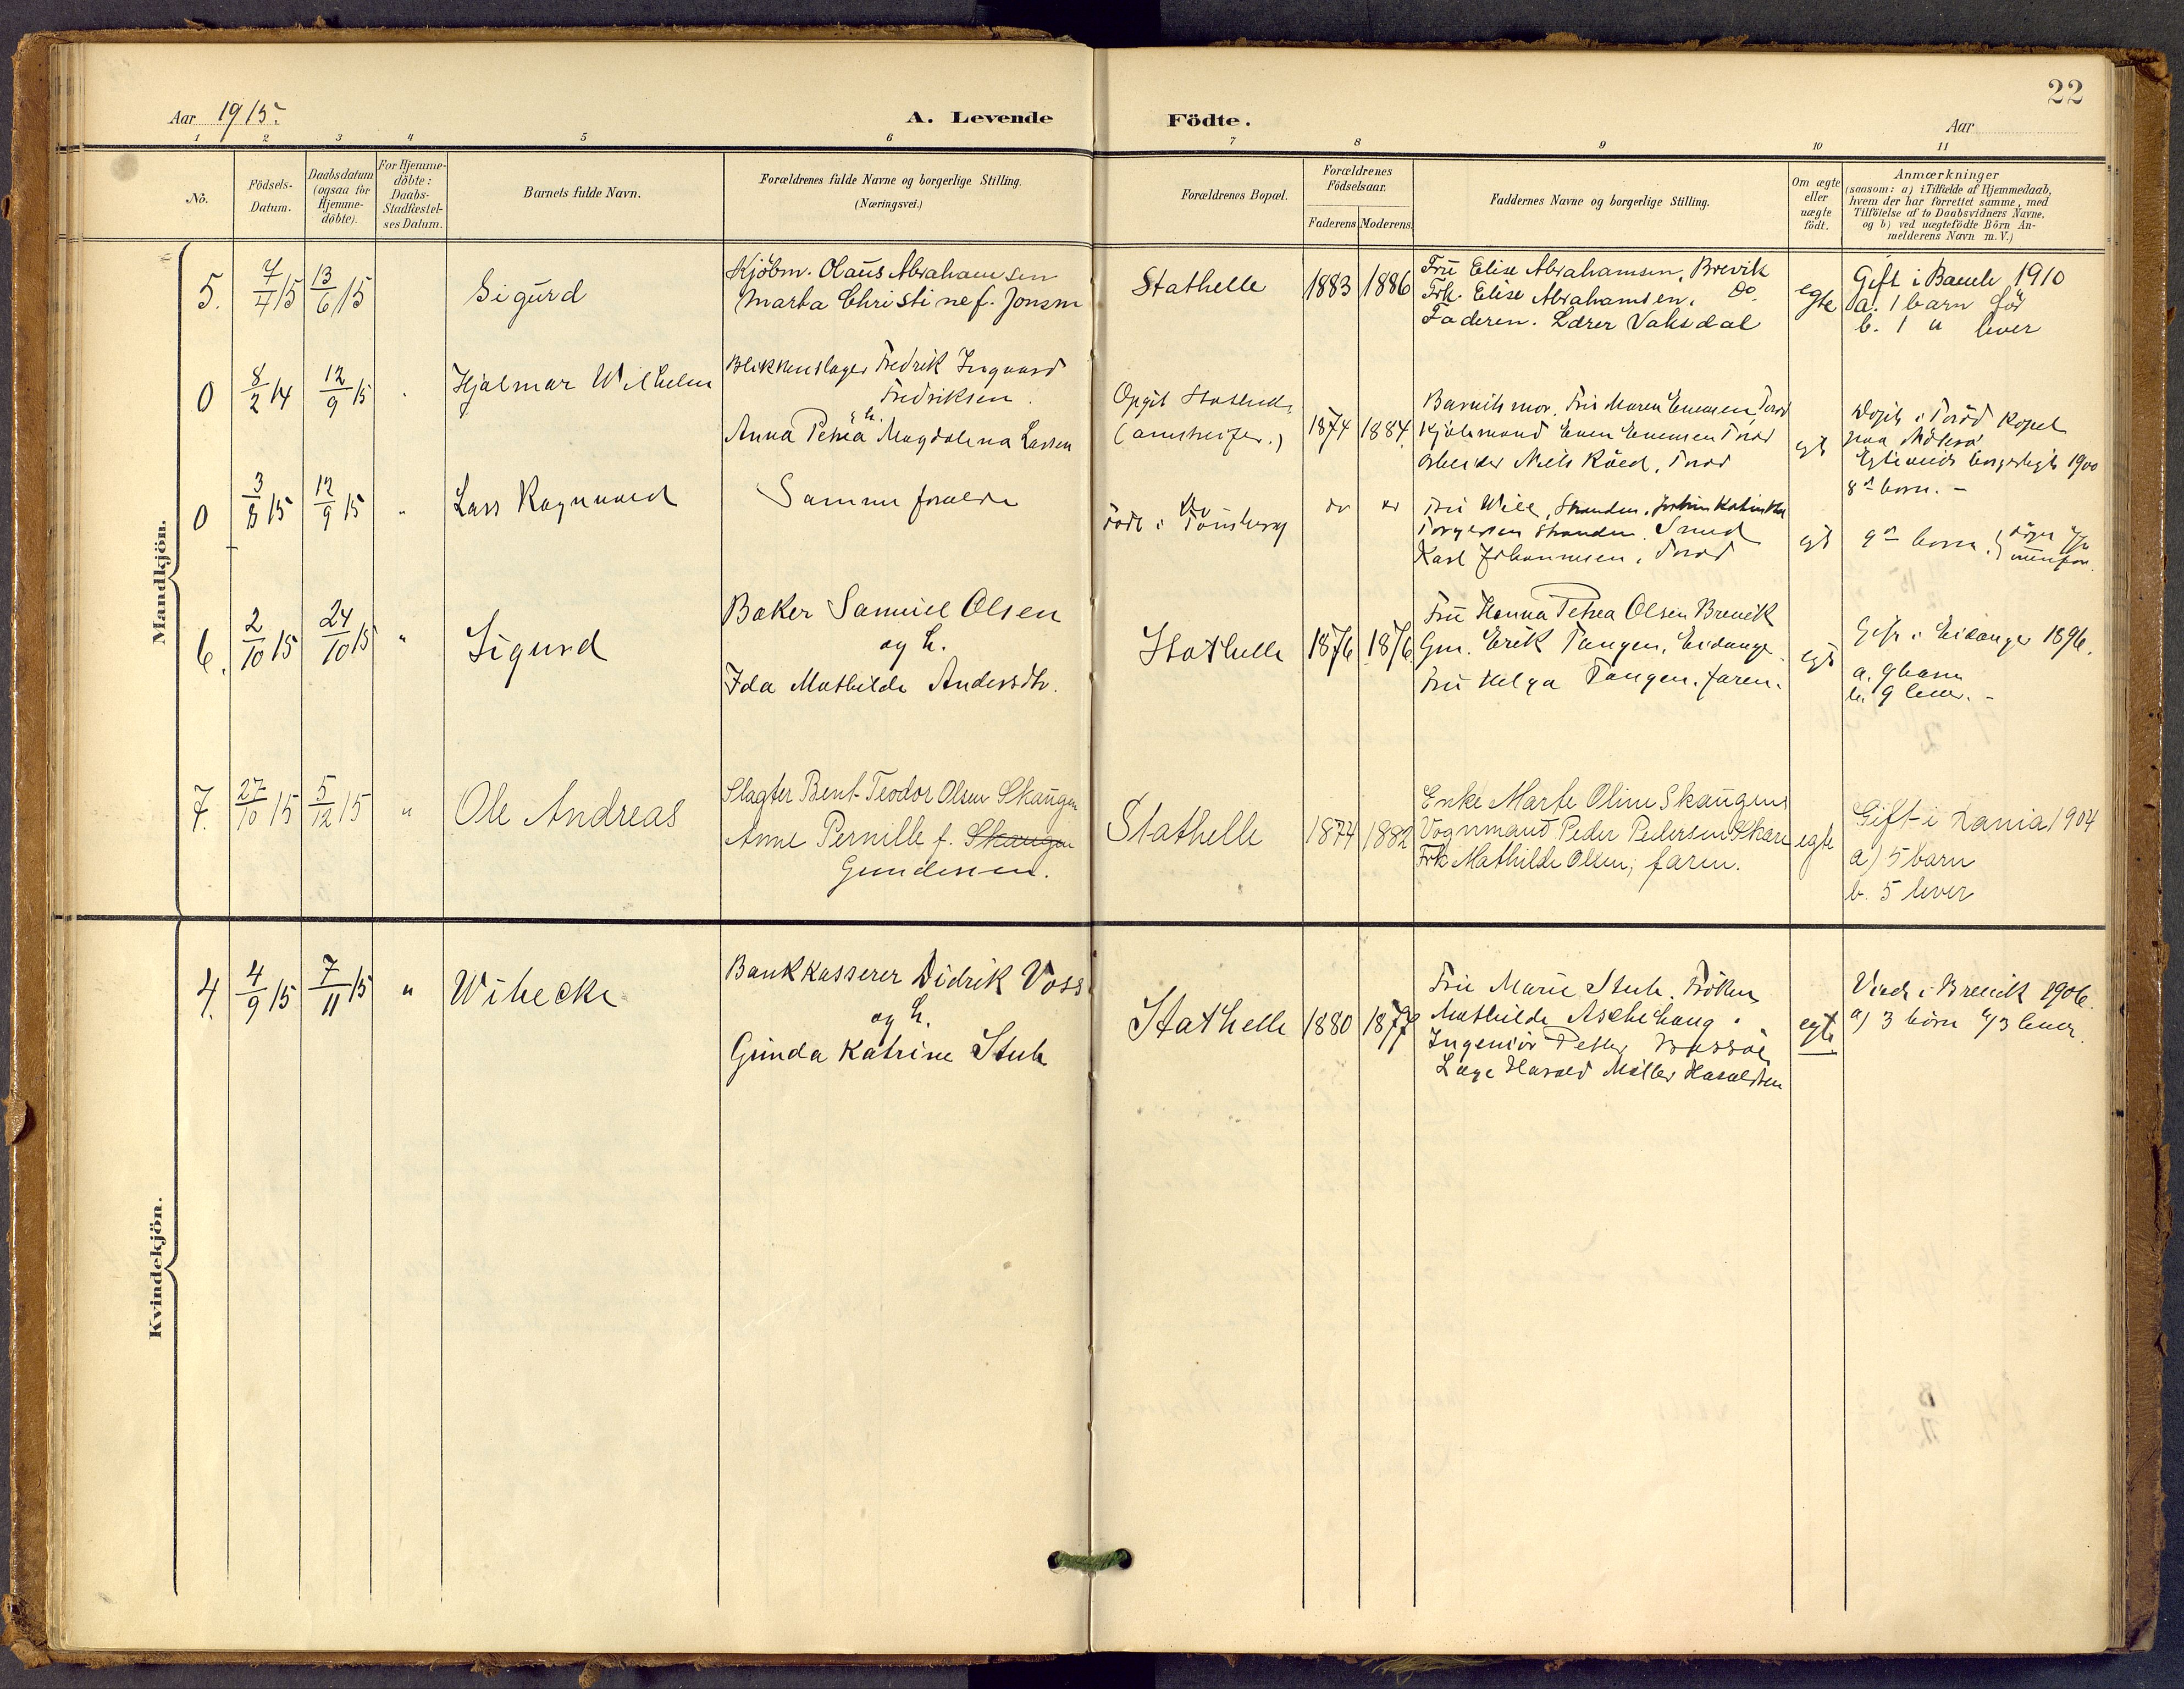 22
Aar 1915.
A. Levende Födte.
Aar
1 2 3 4 5 6 7 8 9 10 11
No.
Födsels-
Datum.
Daabsdatum
(ogsaa for
Hjemme-
döbte).
For Hjemme-
döbte:
Daabs-
Stadfæstel-
ses Datum.
Barnets fulde Navn.
Forældrenes fulde Navne og borgerlige Stilling.
(Næringsvei.)
Forældrenes Bopæl.
Forældrenes
Födselsaar.
Faderens Moderens
Faddernes Navne og borgerlige Stilling.
Om ægte
eller
uægte
födt.
Anmærkninger
(saasom: a) i Tilfælde af Hjemmedaab,
hvem der har forrettet samme, med
Tilföielse af to Daabsvidners Navne.
og b) ved uægtefödte Börn An-
melderens Navn m. V.)
Mandkjön.
5. 7/4 15 13/6 15
Sigurd
Kjöbm. Olaus Abrahamsen
Marta Christine f. Jonsen
Stathelle
1883 1886
Frü Elise Abrahamsen, Brevik
Frk. Elise Abrahamsen. Do.
Faderen. Lærer Vaksdal
egte
Gift i Bamle 1910
a. 1 barn för
b. 1 " lever
0 8/2 14 12/9 15
Hjalmar Wilhelm
Blikkenslager Fredrik Ingvard
Fredriksen.
Anna Petrea Magdalena Larsen
Opgit Stathelle
1874 1884
Barnets mor. Fru Maren Evensen
Kjöbmand Even Evensen
Arbeider Niels
egt
kapel
paa Nöterö
borgerligt 1900
8de barn. -
0 3/8 15 12/9 15 "
Lars Ragnvald
Samme forældre
Född i Tönsberg
do do
Fru
Stranden. Smed
Karl Johannesen,
egt
9de barn.
6. 2/10 15 24/10 15 "
Sigurd
Baker Samuel Olsen
og h.
Ida Mathilde Andersdtr.
Stathelle
1876 1876
Frü Hanna Petrea Olsen Brevik
Gm. Erik Tangen, Eidanger
Frü Helga Tangen. faren.
egt
Gift i Eidanger 1896.
a. 9 barn
b. 9 lever. -
7. 27/10 15 5/12 15 "
Ole Andreas
Slagter Bent Teodor Olsen Skaugen
Anne Pernille f. Skaugen
Gundersen.
Stathelle
1874 1882
Enke Marte Oline Skaugens
Vognmand Peder Pedersen Skare
Frk Mathilde Olsen; faren.
egte
Gift i 1904
a) 5 barn
b. 5 lever
Kvindekjön.
4. 4/9 15 7/11 15 "
Wibecke
Bankkasserer Didrik Voss
og h.
Gunda Katrine Stub
Stathelle
1880 1877
Frü Marie Stub. Fröken
Mathilde Aschehoug.
Ingeniör Petter
Læge Harald Möller Haraldsen
egte
Viede i Brevik 1906.
a) 3 börn b/3 lever.